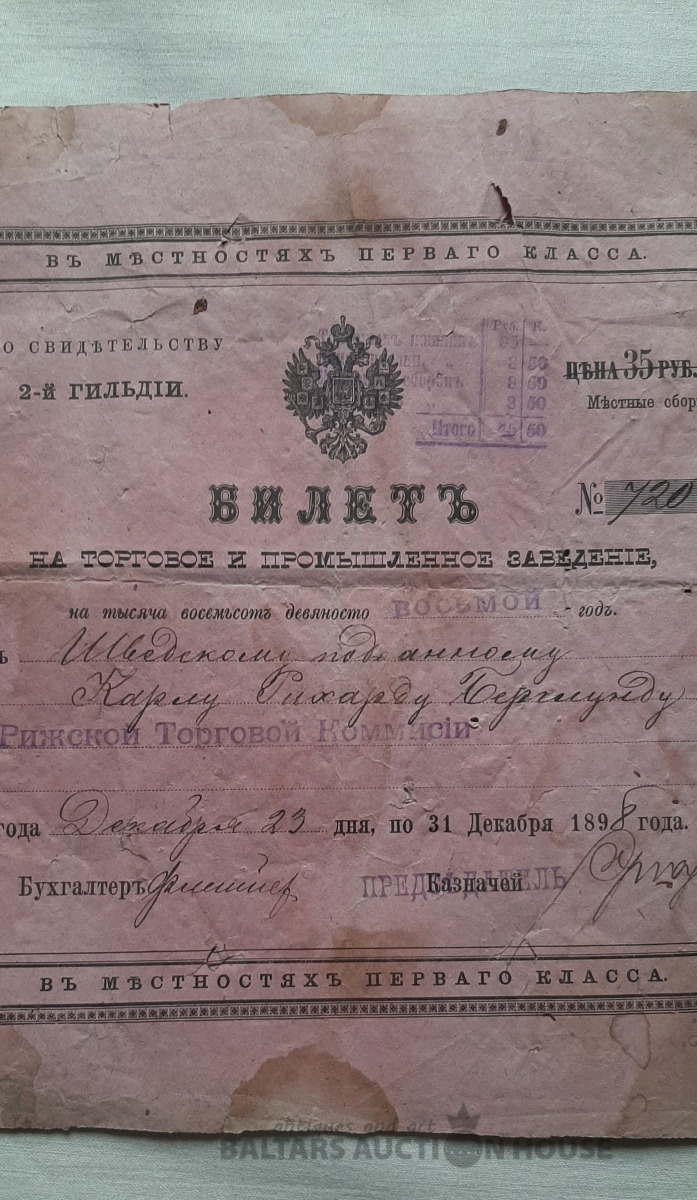 ВЪ МѢСТНОСТЯХЪ ПЕРВАГО КЛАССА.
О СВИДѢТЕЛЬСТВУ
2-й ГИЛЬДІИ.
Руб. К.
50
3 50
Итого 50
ЦѢНА 35 РУБ.
Мѣстные сбор
БИЛЕТЪ
№ 720
НА ТОРГОВОЕ И ПРОМЫШЛЕННОЕ ЗАВЕДЕНІЕ,
на тысяча восемьсотъ девяносто ВОСЬМОЙ годъ.
ъ Шведскому подданному
Карлу Рихарду Берглунду
Рижской Торговой Коммисіи
года Декабря 23 дня, по 31 Декабря 1898 года.
Бухгалтеръ ПРЕДСѢДАТЕЛЬ Казначей
ВЪ МѢСТНОСТЯХЪ ПЕРВАГО КЛАССА.
antiques and art
BALTARS AUCTION HOUSE